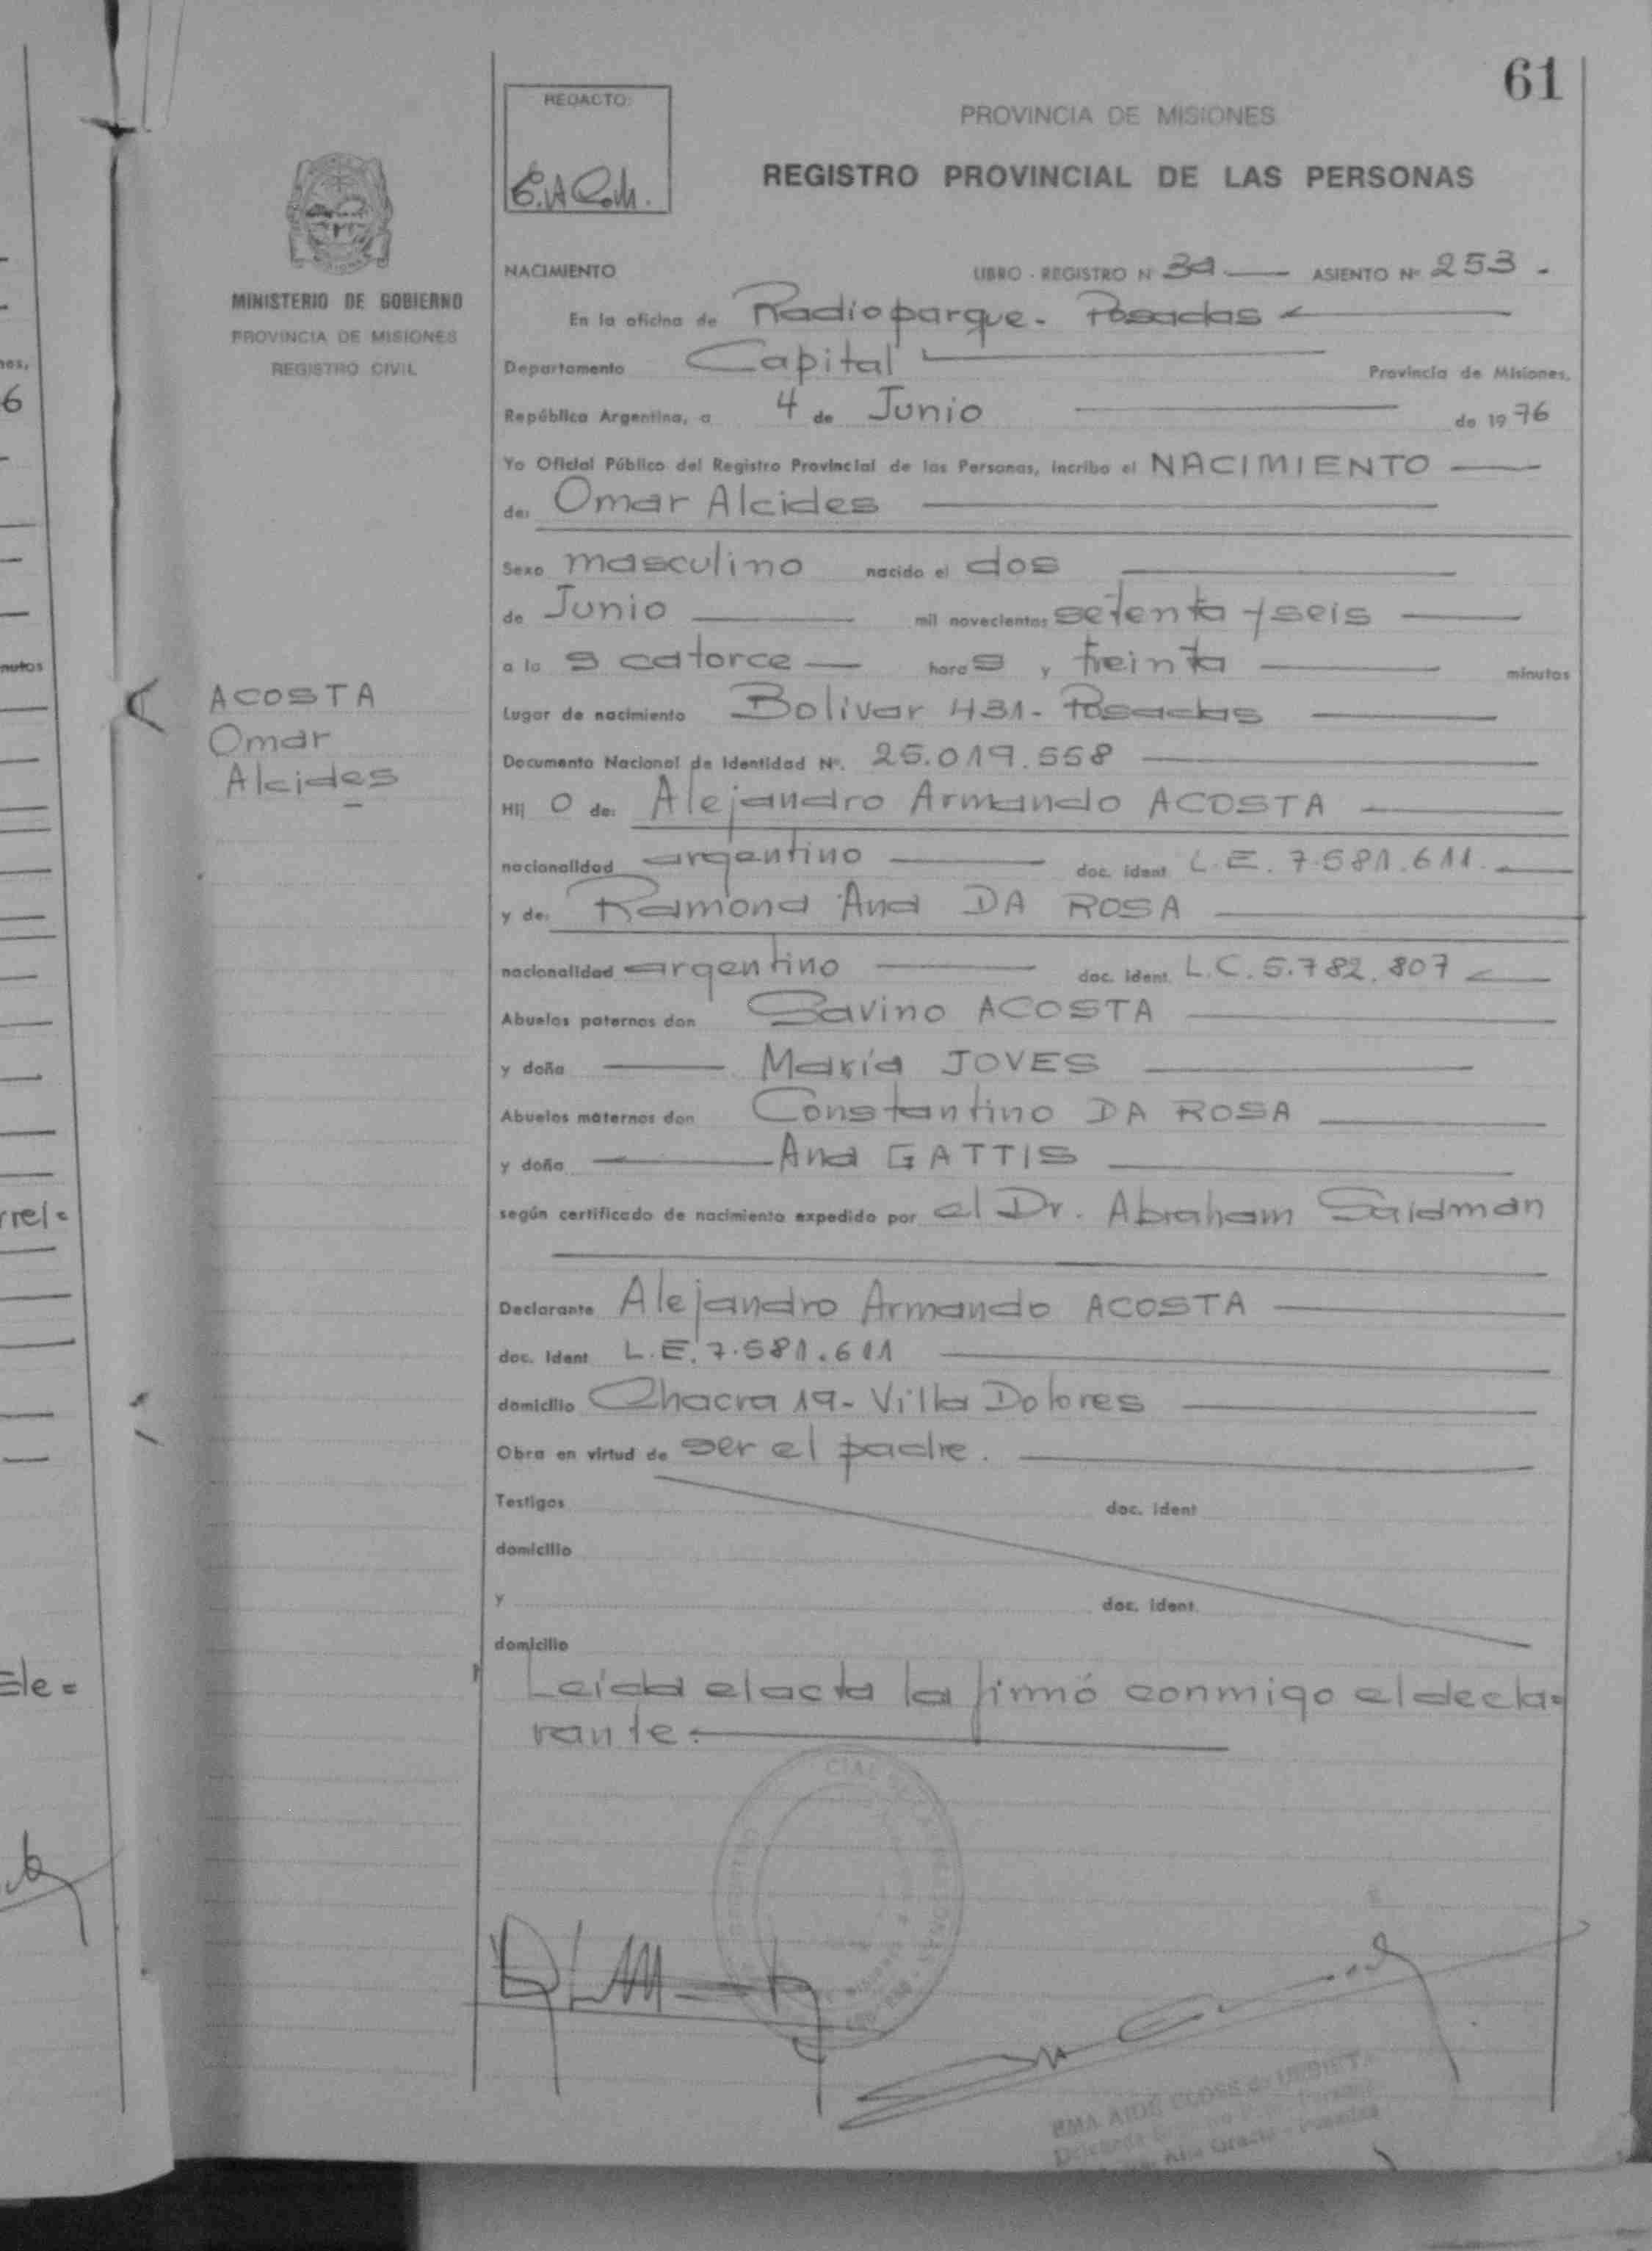 61
REDACTO:
PROVINCIA DE MISIONES
REGISTRO PROVINCIAL DE LAS PERSONAS
MINISTERIO DE GOBIERNO
PROVINCIA DE MISIONES
REGISTRO CIVIL
ACOSTA
Omar
Alcides
NACIMIENTO LIBRO - REGISTRO N 3a ASIENTO Nº 253 -
En la oficina de Radioparque - Posadas
Departamento Capital Provincia de Misiones,
República Argentina, a 4 de Junio de 1976
Yo Oficial Público del Registro Provincial de las Personas, incribo el NACIMIENTO
de: Omar Alcides
Sexo masculino nacido el dos
de Junio mil novecientos setenta y seis
a la s catorce hora s y treinta minutos
Lugar de nacimiento Bolivar 431 - Posadas
Documento Nacional de Identidad Nº. 25.019.558
Hij o de: Alejandro Armando ACOSTA
nacionalidad argentino doc. ident. L.E. 7.581.611.
y de: Ramona Ana DA ROSA
nacionalidad argentino doc. ident. L.C. 5.782.807
Abuelos paternos don Savino ACOSTA
y doña María JOVES
Abuelos maternos don Constantino DA ROSA
y doña Ana GATTIS
según certificado de nacimiento expedido por el Dr. Abraham Saidman
Declarante Alejandro Armando ACOSTA
doc. ident L.E. 7.581.611
domicilio Chacra 19 - Villa Dolores
Obra en virtud de ser el padre.
Testigos doc. ident
domicilio
y doc. ident.
domicilio
Leída el acta la firmó conmigo el decla=
rante.